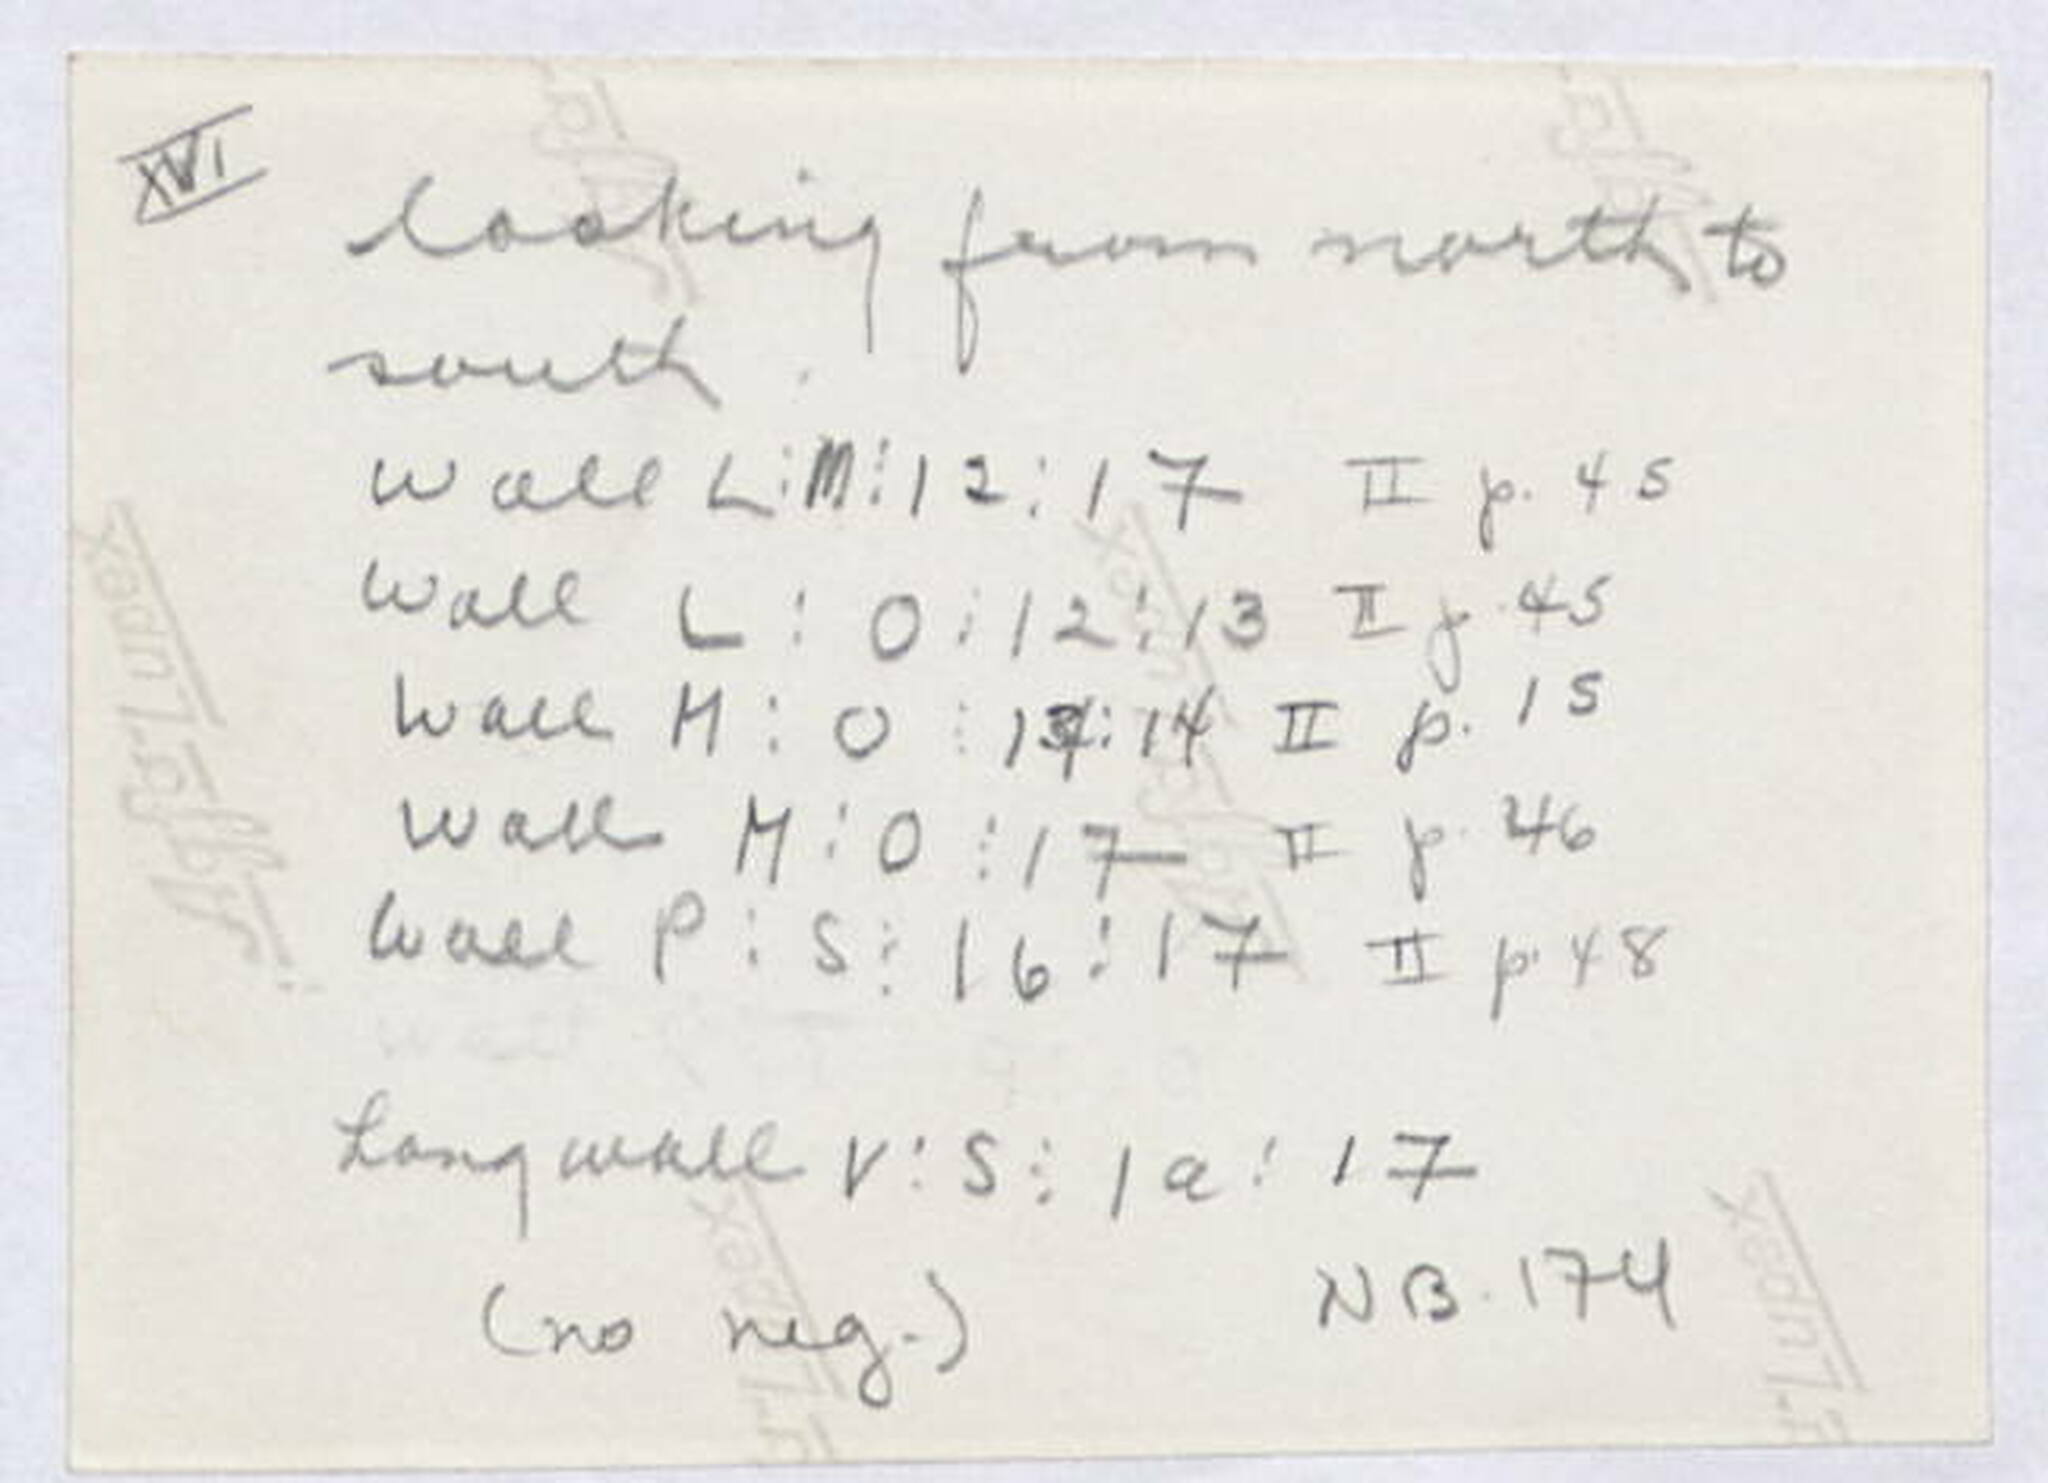 XVI
looking from north to
south.
Wall L:M:12:17 II p. 45
Wall L:O:12:13 II p. 45
Wall M:O:14:14 II p. 15
Wall M:O:17 II p. 46
Wall P:S:16:17 II p. 48
Long wall V:S:1a:17
(no neg.) NB. 174
Agfa-Lupex